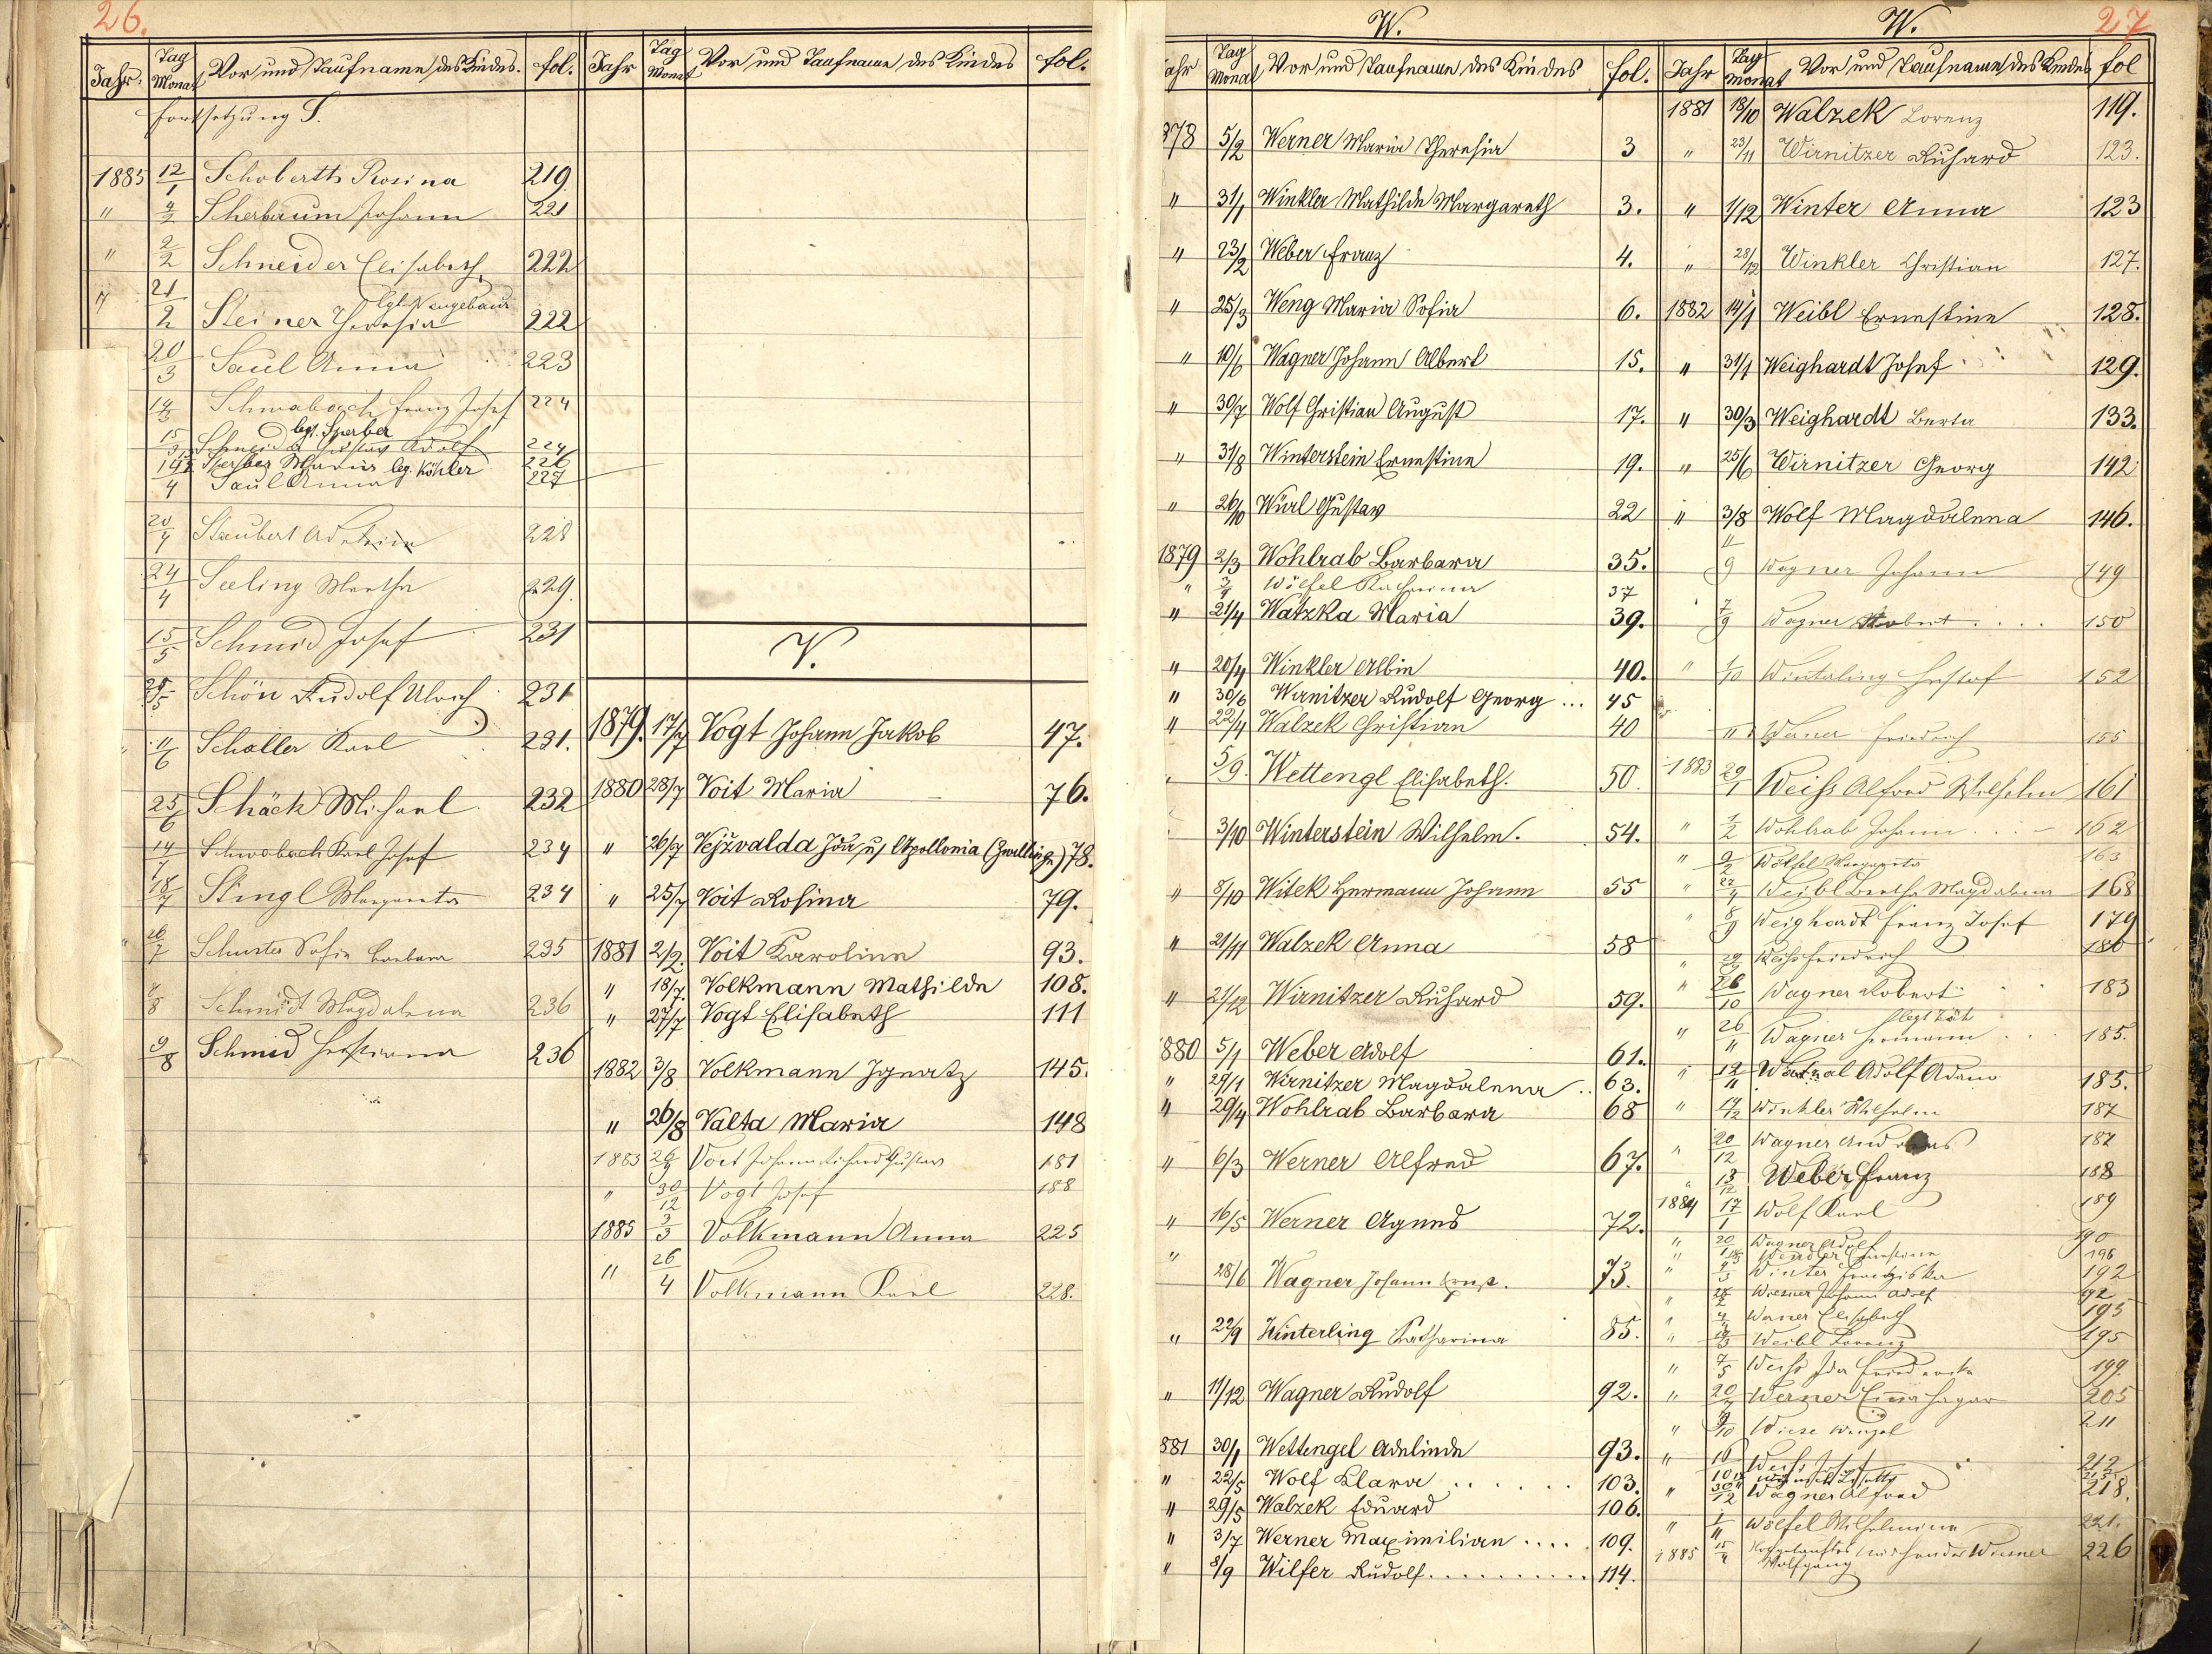 26.
Jahr. Tag Monat Vor und Taufname des Kindes. fol.
Fortsetzung S.
1885 12/1 Schoberth Rosina 219.
" 4/2 Scherbaum Johann 221
" 2/2 Schneider Elisabeth 222
" 21/2 Steiner Theresia lgt. Neugebaur 222
20/3 Saul Anna 223
14/3 Schwabach Franz Josef 224
15/3 Schneider Gustav Adolf legt. Sperber 224
Sperber Maria leg. Köhler 226
4 Saul Anna 227
20/4 Staubert 228
24/4 Seeling Martha 229.
15/5 Schmid Josef 231
25/5 Schön Rudolf Ulrich 231
11/6 Schaller Karl 231.
25/6 Schäck Michael 232
14/7 Schwabach Karl Josef 234
18/7 Stingl Margareta 234
26/7 Schuster Sofia Barbara 235
4/8 Schmidt Magdalena 236
9/8 Schmid Christiana 236
Jahr Tag Monat Vor und Taufname des Kindes fol.
V.
1879. 17/7 Vogt Johann Jakob 47.
1880 28/7 Voit Maria 76.
" 26/7 Vejžvalda Ida u/ Apollonia (Zwillinge) 78.
" 25/7 Voit Rosina 79.
1881 2/2. Voit Karolina 93.
" 18/7. Volkmann Mathilde 108.
" 27/7 Vogt Elisabeth 111
1882 3/8 Volkmann Ignatz 145.
" 26/8 Valta Maria 148
1883 26/9 Voit Johann Richard Gustav 181
" 30/12 Vogt Josef 188
1885 3/3 Volkmann Anna 225
" 26/4 Volkmann Karl 228.
W.
ahr Tag Monat Vor und Taufname des Kindes fol.
878 5/2 Werner Maria Theresia 3
" 31/1 Winkler Mathilde Margareth 3.
" 23/2 Weber Franz 4.
" 25/3 Weng Maria Sofia 6.
" 10/6 Wagner Johann Albert 15.
" 30/7 Wolf Christian August 17.
" 31/8 Winterstein Ernestine 19.
" 26/10 Würl Gustav 22
1879 2/3 Wohlrab Barbara 35.
" 3/4 Wölfel Katharina 37
" 21/4 Watzka Maria 39.
" 20/4 Winkler Albin 40.
" 30/6 Wirnitzer Rudolf Georg ... 45
" 22/4 Walzek Christian 40
" 5/9. Wettengl Elisabeth. 50.
3/10 Winterstein Wilhelm. 54.
" 8/10 Witek Hermann Johann 55
" 21/11 Walzek Anna 58
" 21/12 Wirnitzer Richard 59.
880 5/1 Weber Adolf 61.
" 29/1 Wirnitzer Magdalena .. 63.
" 29/4 Wohlrab Barbara 68
" 6/3 Werner Alfred 67.
" 16/5 Werner Agnes 72.
" 28/6 Wagner Johann Ernst. 73.
" 22/9 Winterling Katharina 85.
" 11/12 Wagner Rudolf 92.
881 30/1 Wettengel Adelinde 93.
" 22/5 Wolf Klara ...... 103.
" 29/5 Walzek Eduard 106.
" 3/7 Werner Maximilian .... 109.
" 8/9 Wilfer Rudolf .......... 114.
W. 27
Jahr Tag Monat Vor und Taufname des Kindes fol
1881 18/10 Walzek Lorenz 119.
" 23/11 Wirnitzer Richard 123.
" 1/12 Winter Anna 123
" 28/12 Winkler Christian 127.
1882 14/1 Weibl Ernestine 128.
" 31/1 Weighardt Josef 129.
" 30/3 Weighardt Berta 133.
" 25/6 Wirnitzer Georg 142
" 3/8 Wolf Magdalena 146.
11/9 Wagner Johann 149
7/9 Wagner Robert .... 150
" 1/10 Winterling Gustof 152
Werner Friedrich 155
1883 29/1 Weiss Alfred Wilhelm 161
" 1/2 Wohlrab Johann 162
" 2/2 Wölfel Margareta 163
" 22/4 Weibl Bertha Magdalena 168
" 8/9 Weighardt Franz Josef 179
" 29/9 Weiss Friedrich 180
" 26/10 Wagner Robert 183
" 26/11 Wagner Hermann 185.
" 12/11 Adolf Adam 185.
" 14/12 Winkler Wilhelm 187
" 20/12 Wagner Andreas 187
" 13/12 Weber Franz 188
1884 17/1 Wolf Karl 189
" 20/1 Wagner Adolf 190
" Wendler Ernestine 196
" Winter Franziska 192
" Wiesner Johann Adolf 192
" Werner Elisabeth 195
" Weibl Lorenz 195
" 7/5 Weiss Ida Friederika 199.
" 20/7 Werner Emma Hagar 205
" 9/10 Wiese Wenzel 211
" Weiss Josef 212
" 30/12 Wagner Alfred 218.
" 1/11 Wölfel Wilhelmine 221.
1885 15/4 Notgetauftes Wiesner Wolfgang 226